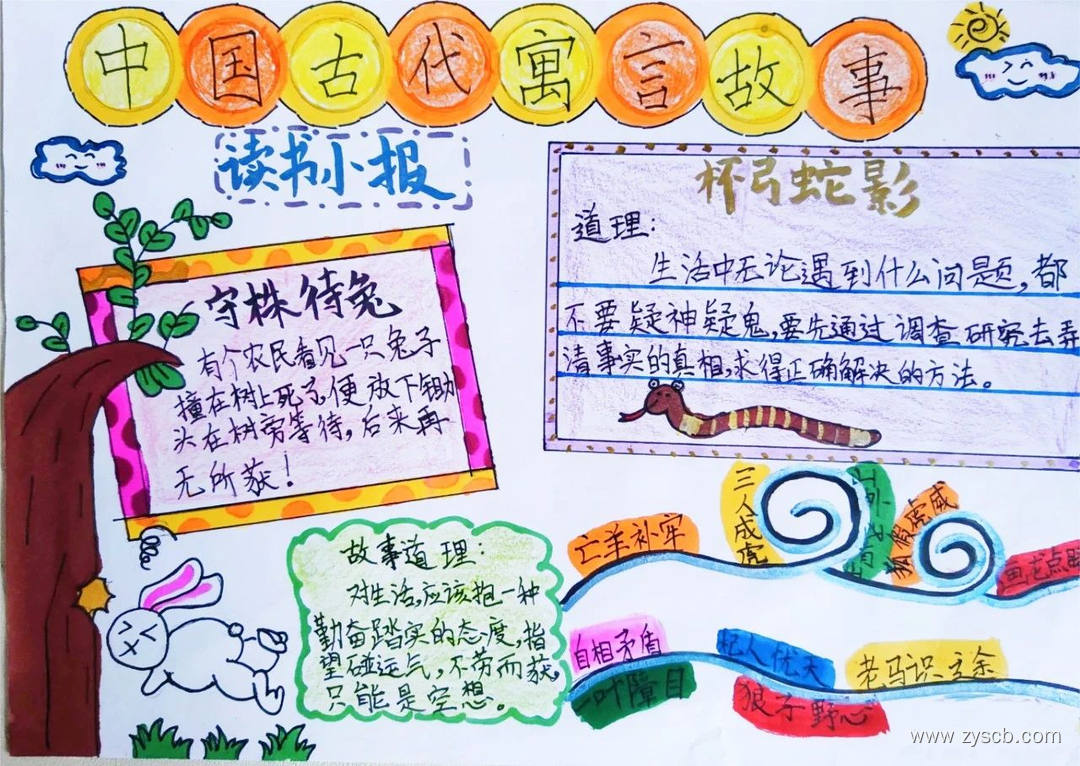 中国古代寓言故事
读书小报
守株待兔
有个农民看见一只兔子
撞在树上死了,便放下锄
头在树旁等待,后来再
无所获!
杯弓蛇影
道理:
生活中无论遇到什么问题,都
不要疑神疑鬼,要先通过调查研究去弄
清事实的真相,求得正确解决的方法。
故事道理:
对生活,应该抱一种
勤奋踏实的态度,指
望碰运气,不劳而获,
只能是空想。
亡羊补牢
三人成虎
假虎威
画龙点
自相矛盾
一叶障目
杞人忧天
狼子野心
老马识
www.zyscb.com